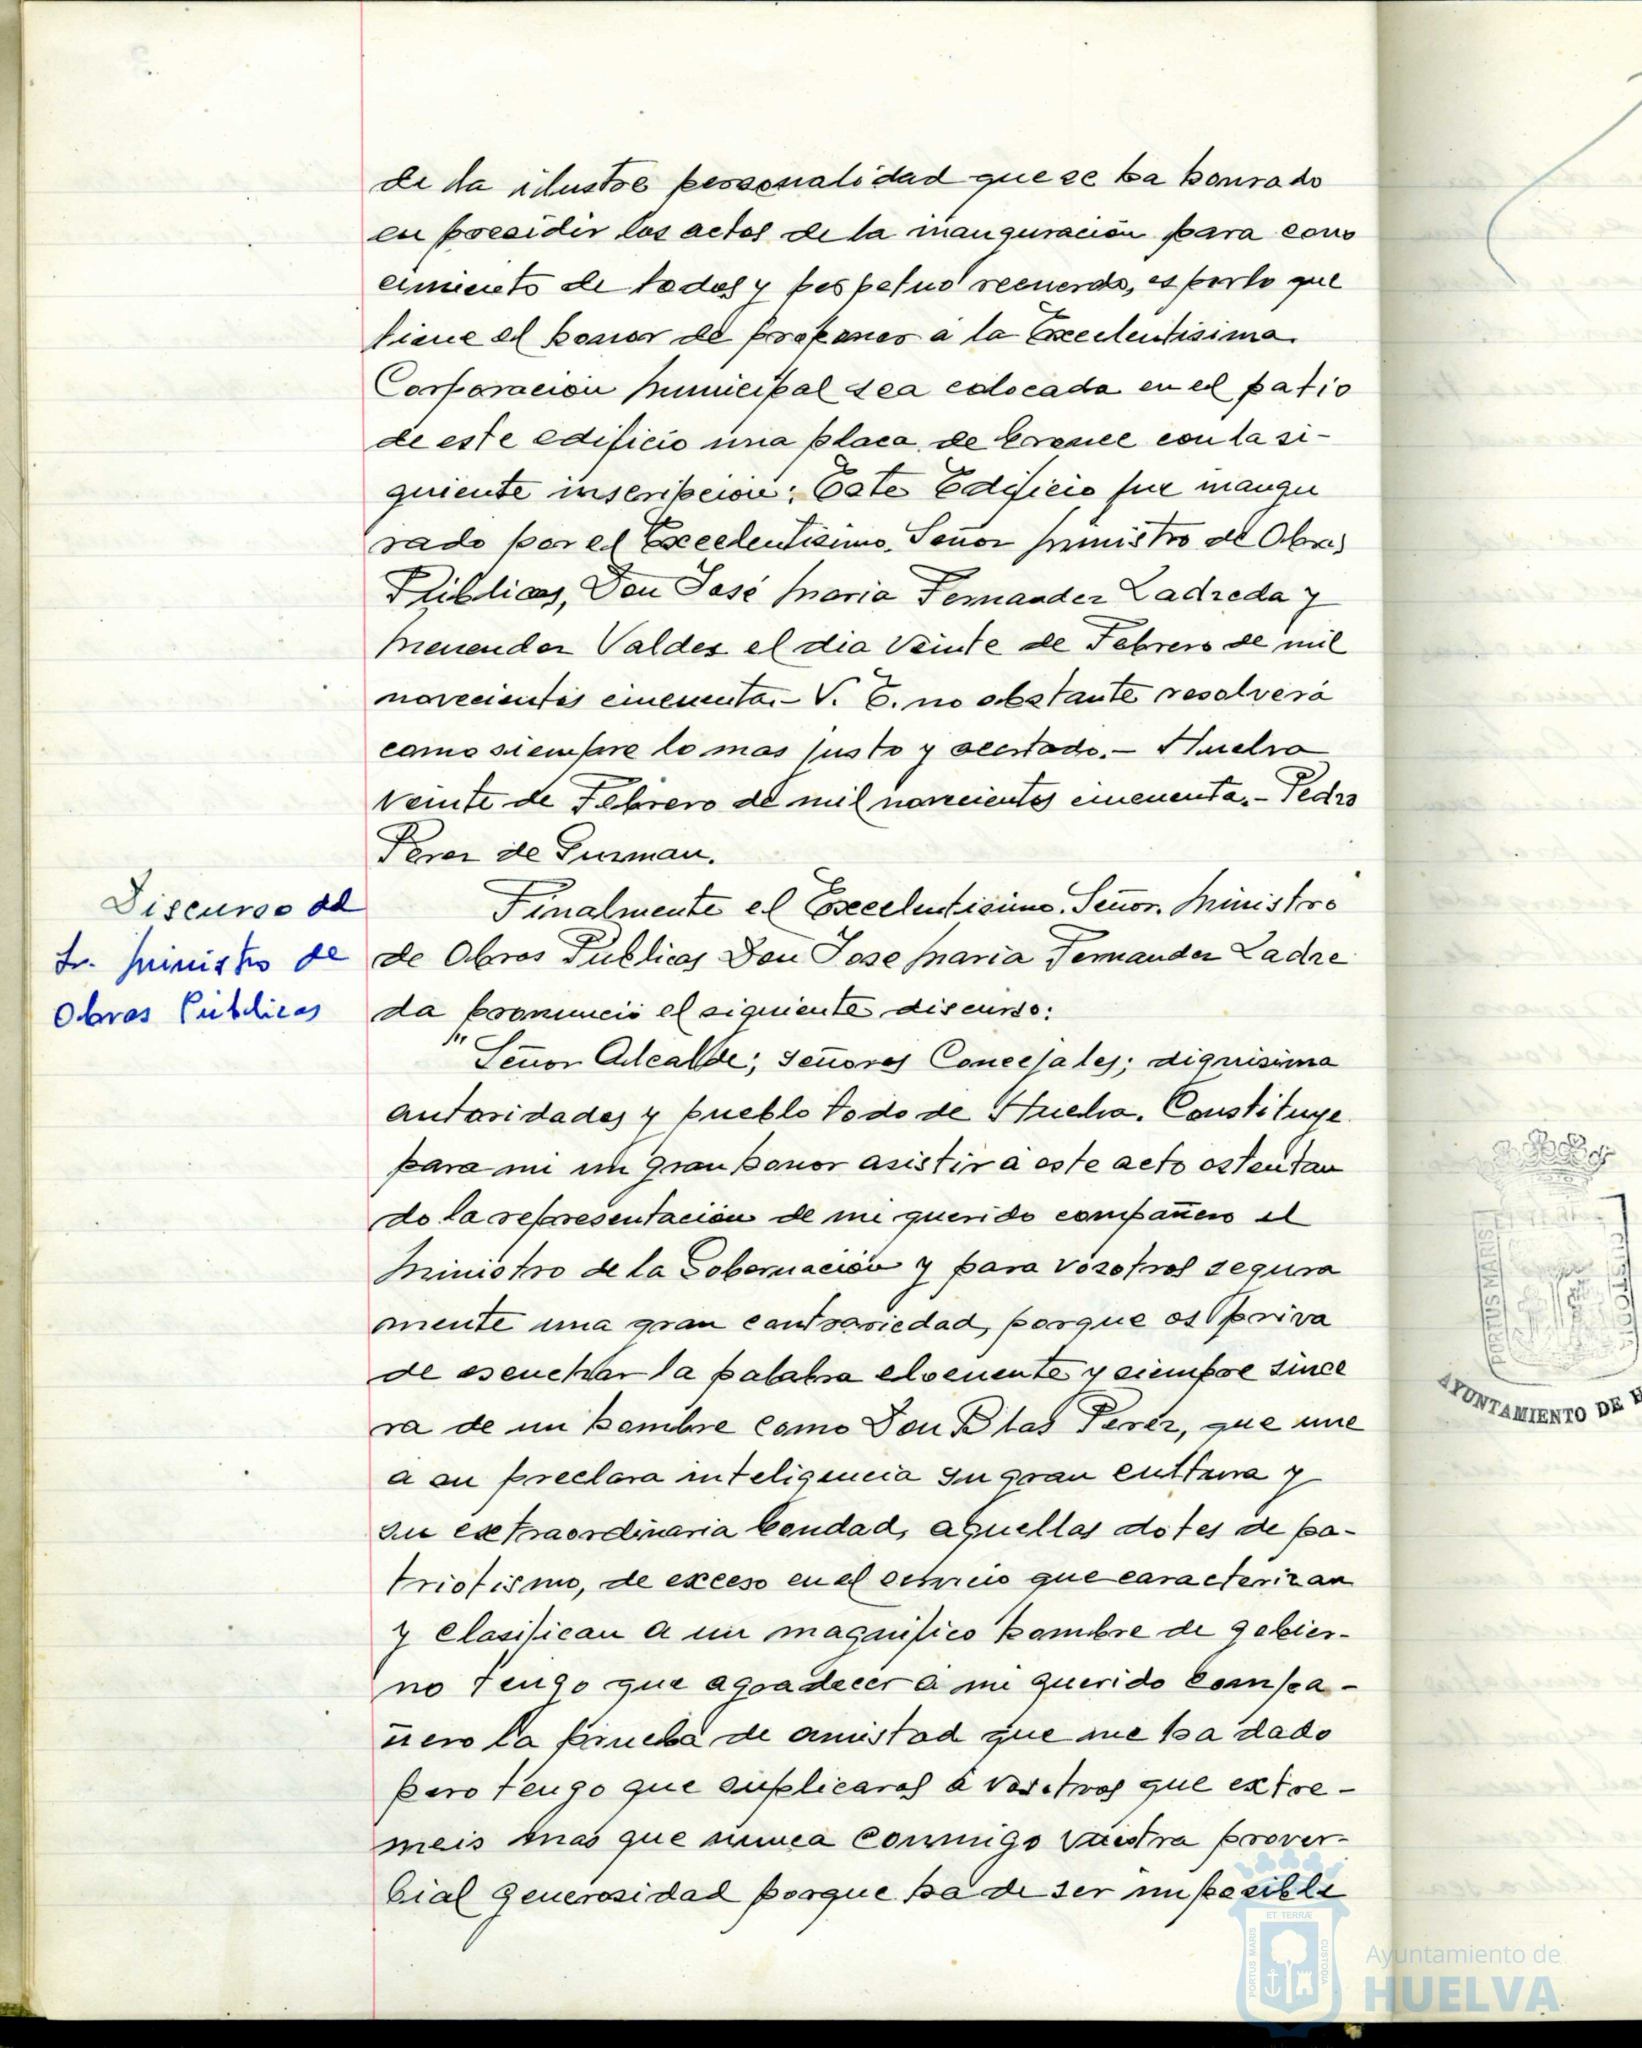 de la ilustre personalidad que se ha honrado
en presidir los actos de la inauguración para cono
cimiento de todos y perpetuo recuerdo, es porlo que
tiene el honor de proponer a la Excelentisima
Corporación Municipal sea colocada en el patio
de este edificio una placa de bronce con la si-
guiente inscripción: Este Edificio fue inaugu
rado por el Excelentisimo Señor Ministro de Obras
Públicas, Don José Maria Fernandez Ladreda y
Menendez Valdes el dia veinte de Febrero de mil
novecientos cincuenta.- V. E. no obstante resolverá
como siempre lo mas justo y acertado.- Huelva
veinte de Febrero de mil novecientos cincuenta.- Pedro
Perez de Guzman.
Discurso del
Sr. Ministro de
Obras Públicas
Finalmente el Excelentisimo Señor Ministro
de Obras Publicas Don Jose Maria Fernandez Ladre
da pronunció el siguiente discurso:
"Señor Alcalde; señores Concejales; dignisima
autoridades y pueblo todo de Huelva. Constituye
para mi un gran honor asistir a este acto ostentan
do la representación de mi querido compañero el
Ministro de la Gobernación y para vosotros segura
mente una gran contrariedad, porque os priva
de escuchar la palabra elocuente y siempre since
ra de un hombre como Don Blas Perez, que une
a su preclara inteligencia su gran cultura y
su extraordinaria bondad, aquellas dotes de pa-
triotismo, de exceso en el servicio que caracterizan
y clasifican a un magnifico hombre de gobier-
no tengo que agradecer a mi querido compa-
ñero la prueba de amistad que me ha dado
pero tengo que suplicaros a vosotros que extre-
meis mas que nunca conmigo vuestra prover-
bial generosidad porque ha de ser imposible
PORTUS MARIS
AYUNTAMIENTO DE H
PORTUS MARIS ET TERRÆ CUSTODIA
Ayuntamiento de
HUELVA